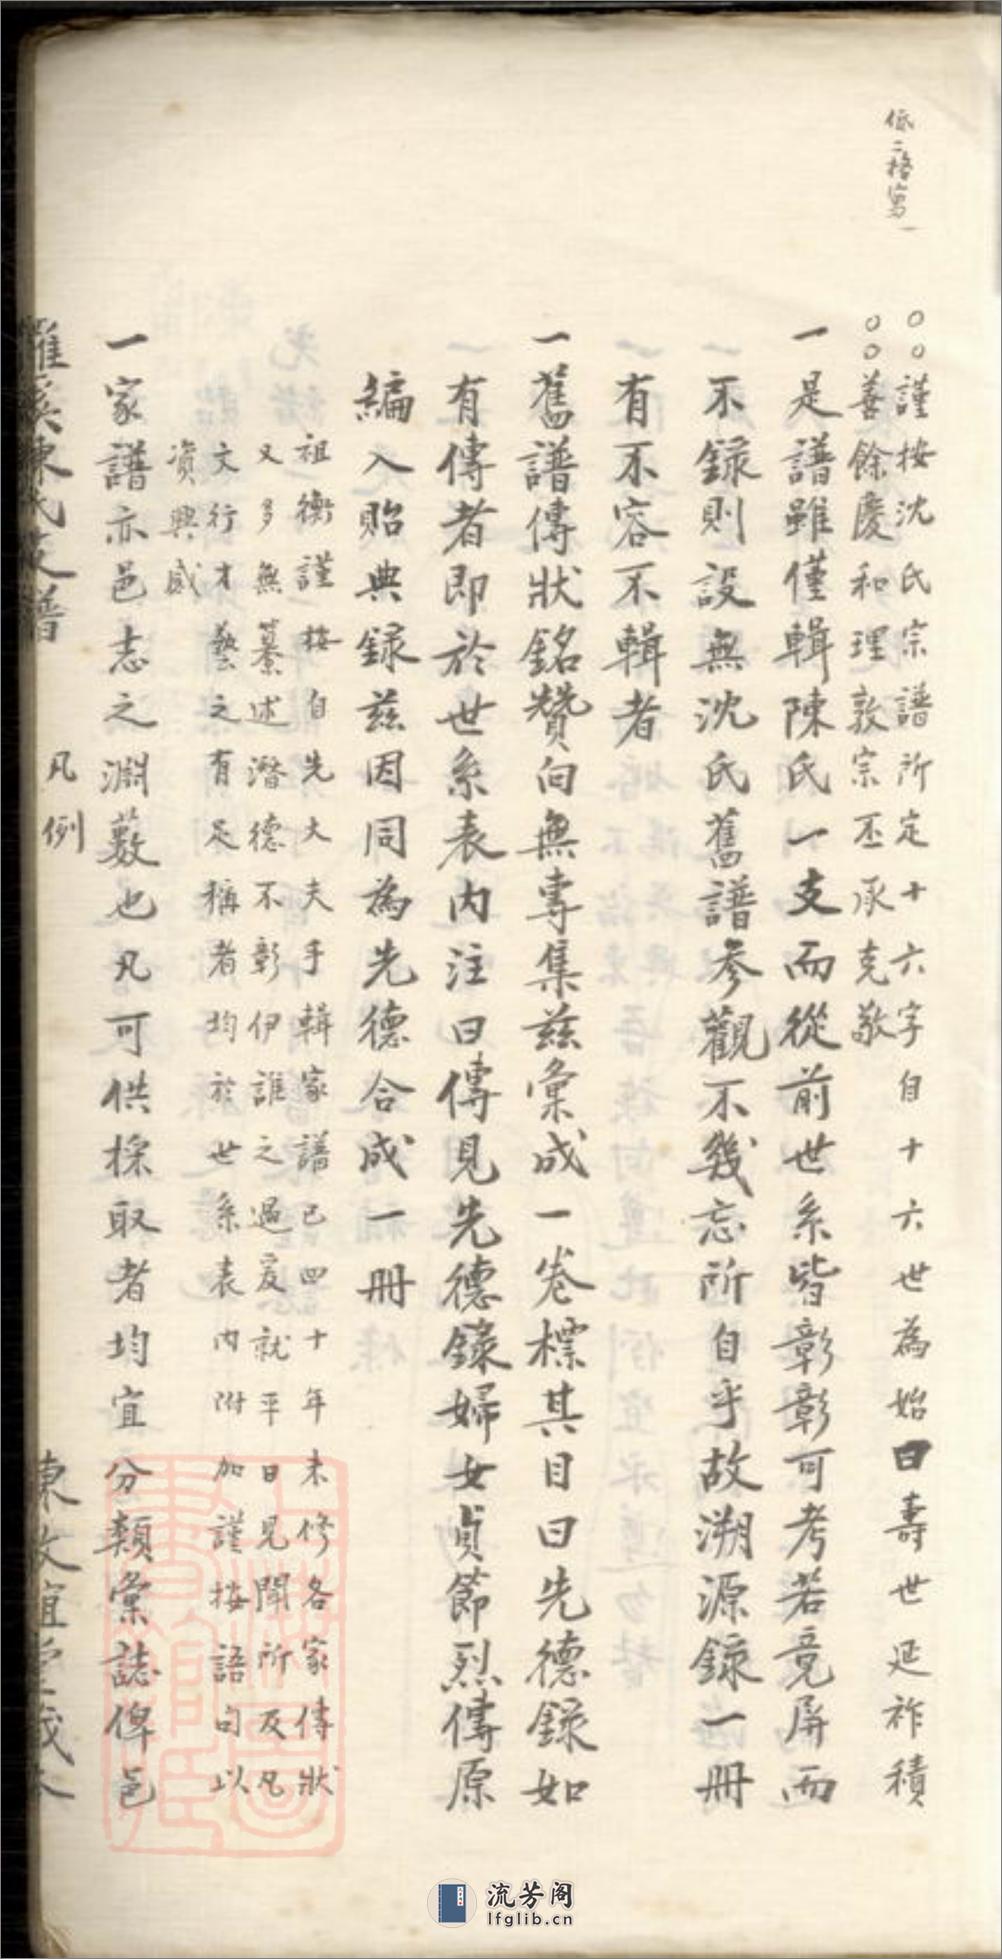 低二格寫
○○謹按沈氏宗譜所定十六字自十六世為始曰壽世延祚積
○○善餘慶和理敦宗丕承克敬
一是譜雖僅輯陳氏一支而從前世系皆彰彰可考若竟屏而
不錄則設無沈氏舊譜參觀不幾忘所自乎故溯源錄一冊
有不容不輯者
一舊譜傳狀銘贊向無專集茲彙成一卷標其目曰先德錄如
有傳者即於世系表內注曰傳見先德錄婦女貞節烈傳原
編入貽典録茲因同為先德合成一冊
祖衡謹按自先大夫手輯家譜已四十年未修各家傳狀
又多無纂述潛德不彰伊誰之過爰就平日見聞所及凡
文行才藝之有足稱者均於世系表內附加謹按語句以
資興感
一家譜亦邑志之淵藪也凡可供採取者均宜分類彙誌俾邑
陳氏支譜 凡例
上海圖書館藏
流芳阁
lfglib.cn